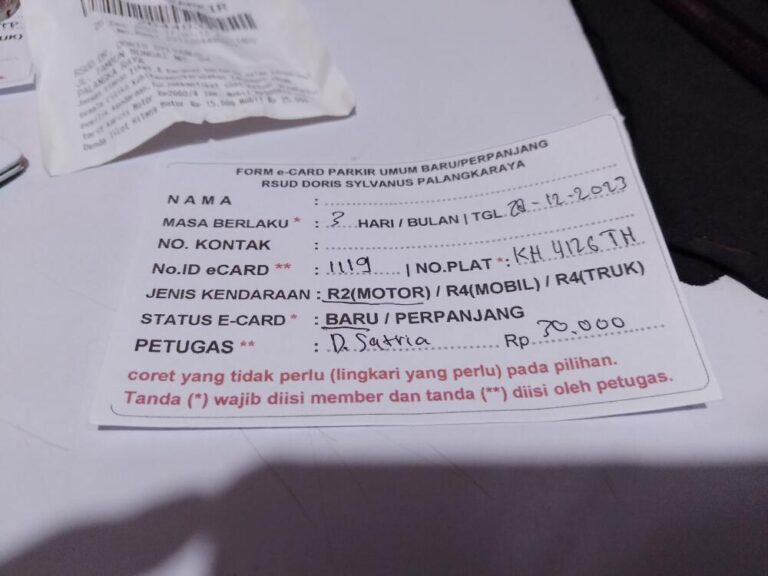 RSUD DR. DORIS SYLVANUS
PALANGKA RAYA
Denda Tiket Hilang Motor Rp 15.000 Mobil Rp 25.000
FORM e-CARD PARKIR UMUM BARU/PERPANJANG
RSUD DORIS SYLVANUS PALANGKARAYA
NAMA :
MASA BERLAKU * : 3 HARI / BULAN | TGL. -12-2023
NO. KONTAK :
No.ID eCARD ** : 1119 | NO.PLAT *: KH 4126 TH
JENIS KENDARAAN : R2(MOTOR) / R4(MOBIL) / R4(TRUK)
STATUS E-CARD * : BARU / PERPANJANG
PETUGAS ** : D. Satria Rp 30.000
coret yang tidak perlu (lingkari yang perlu) pada pilihan.
Tanda (*) wajib diisi member dan tanda (**) diisi oleh petugas.